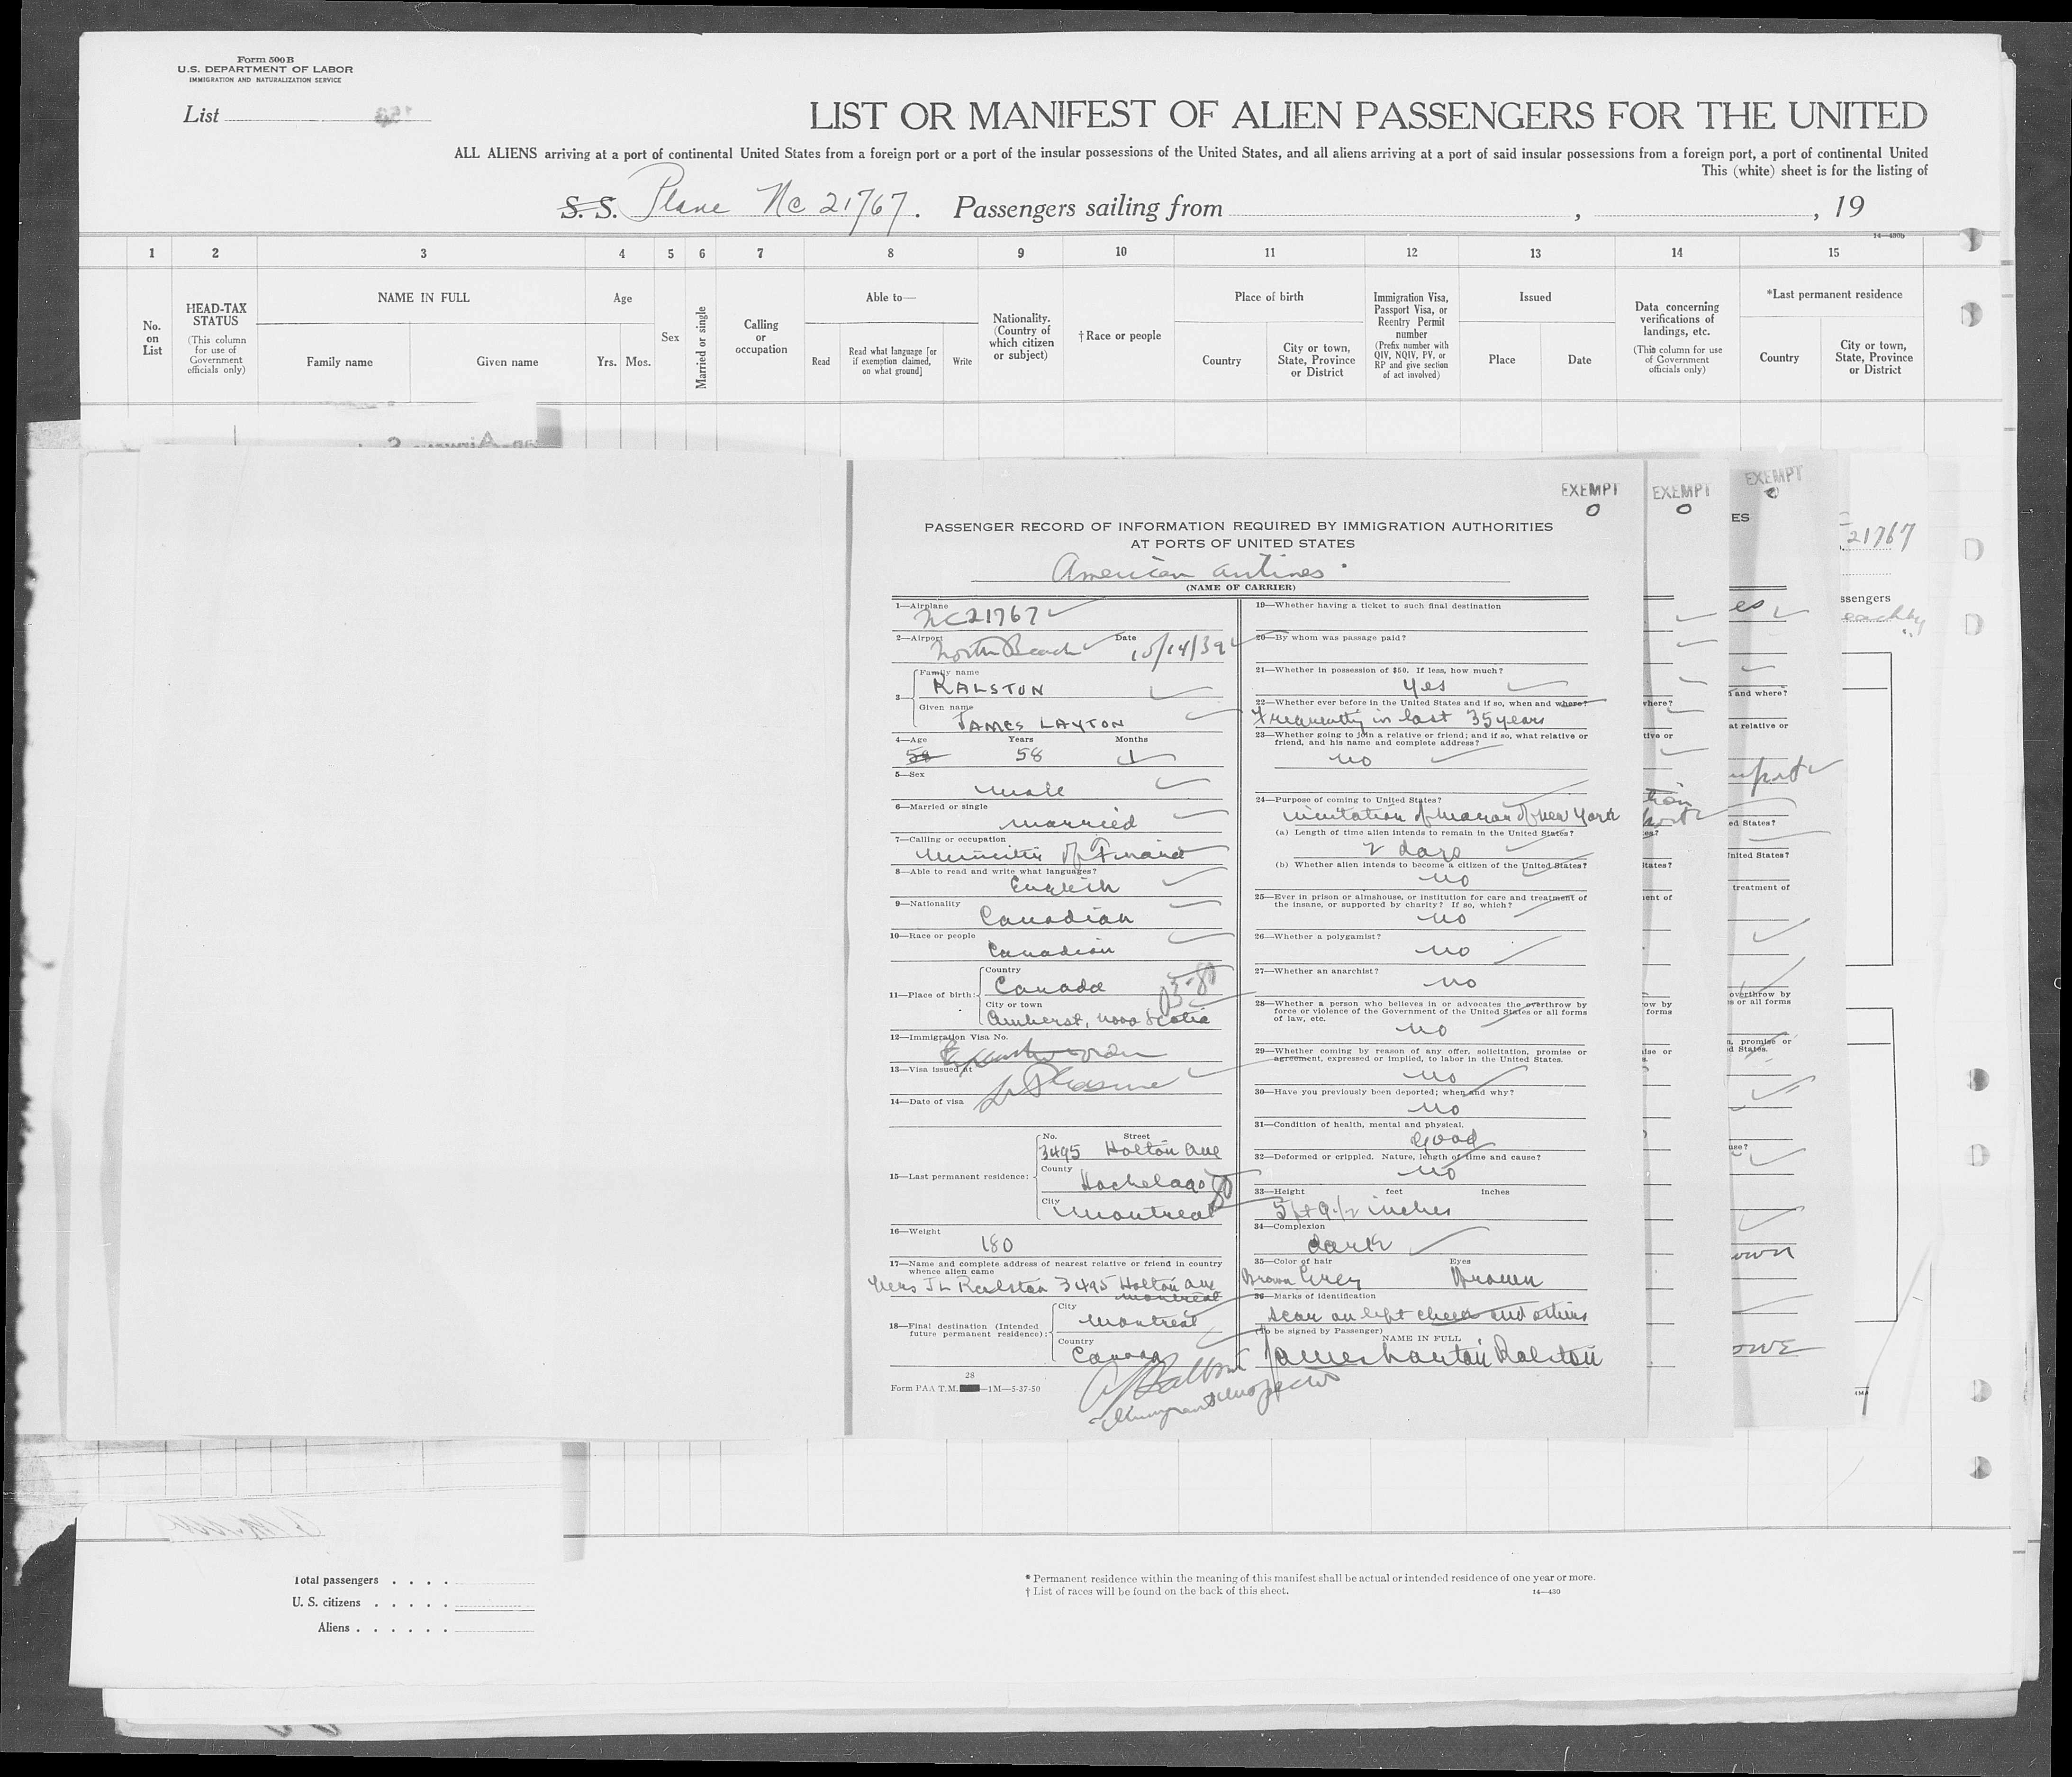 Form 500 B
U.S. DEPARTMENT OF LABOR
IMMIGRATION AND NATURALIZATION SERVICE
List
LIST OR MANIFEST OF ALIEN PASSENGERS FOR THE UNITED
ALL ALIENS arriving at a port of continental United States from a foreign port or a port of the insular possessions of the United States, and all aliens arriving at a port of said insular possessions from a foreign port, a port of continental United
This (white) sheet is for the listing of
S. S. Plane Nc 21767. Passengers sailing from , , 19
14—430b
1 2 3 4 5 6 7 8 9 10 11 12 13 14 15
No. on List
HEAD-TAX STATUS
(This column for use of Government officials only)
NAME IN FULL
Family name Given name
Age
Yrs. Mos.
Sex
Married or single
Calling or occupation
Able to—
Read
Read what language [or if exemption claimed, on what ground]
Write
Nationality. (Country of which citizen or subject)
† Race or people
Place of birth
Country
City or town, State, Province or District
Immigration Visa, Passport Visa, or Reentry Permit number
(Prefix number with QIV, NQIV, PV, or RP and give section of act involved)
Issued
Place Date
Data concerning verifications of landings, etc.
(This column for use of Government officials only)
*Last permanent residence
Country
City or town, State, Province or District
EXEMPT
0
EXEMPT
0
EXEMPT
PASSENGER RECORD OF INFORMATION REQUIRED BY IMMIGRATION AUTHORITIES
AT PORTS OF UNITED STATES
American Airlines
(NAME OF CARRIER)
1—Airplane
NC21767
2—Airport Date
North Beach 10/14/39
3—
Family name
RALSTON
Given name
JAMES LAYTON
4—Age Years Months
58 58 1
5—Sex
male
6—Married or single
married
7—Calling or occupation
Minister of Finance
8—Able to read and write what languages?
English
9—Nationality
Canadian
10—Race or people
Canadian
11—Place of birth:
Country
Canada
City or town
Amherst, Nova Scotia
12—Immigration Visa No.
13—Visa issued at
Pleasure
14—Date of visa
15—Last permanent residence:
No. Street
3495 Holton Ave
County
Hochelaga
City
Montreal
16—Weight
180
17—Name and complete address of nearest relative or friend in country
whence alien came
Mrs J L Ralston 3495 Holton Ave
Montreal
18—Final destination (Intended
future permanent residence):
City
Montreal
Country
Canada
28
Form PAA T.M. —1M—5-37-50
Immigrant Inspector
19—Whether having a ticket to such final destination
20—By whom was passage paid?
21—Whether in possession of $50. If less, how much?
Yes
22—Whether ever before in the United States and if so, when and where?
Frequently in last 35 years
23—Whether going to join a relative or friend; and if so, what relative or
friend, and his name and complete address?
no
24—Purpose of coming to United States?
invitation of mayor of New York
(a) Length of time alien intends to remain in the United States?
2 days
(b) Whether alien intends to become a citizen of the United States?
no
25—Ever in prison or almshouse, or institution for care and treatment of
the insane, or supported by charity? If so, which?
no
26—Whether a polygamist?
no
27—Whether an anarchist?
no
28—Whether a person who believes in or advocates the overthrow by
force or violence of the Government of the United States or all forms
of law, etc.
no
29—Whether coming by reason of any offer, solicitation, promise or
agreement, expressed or implied, to labor in the United States.
no
30—Have you previously been deported; when and why?
no
31—Condition of health, mental and physical.
good
32—Deformed or crippled. Nature, length of time and cause?
no
33—Height feet inches
5 ft 9 1/2 inches
34—Complexion
dark
35—Color of hair Eyes
Brown Grey Brown
36—Marks of identification
scar on left cheek and others
(To be signed by Passenger)
NAME IN FULL
James Layton Ralston
ES
21767
ssengers
Total passengers . . . .
U. S. citizens . . . . .
Aliens . . . . . .
* Permanent residence within the meaning of this manifest shall be actual or intended residence of one year or more.
† List of races will be found on the back of this sheet.
14—430